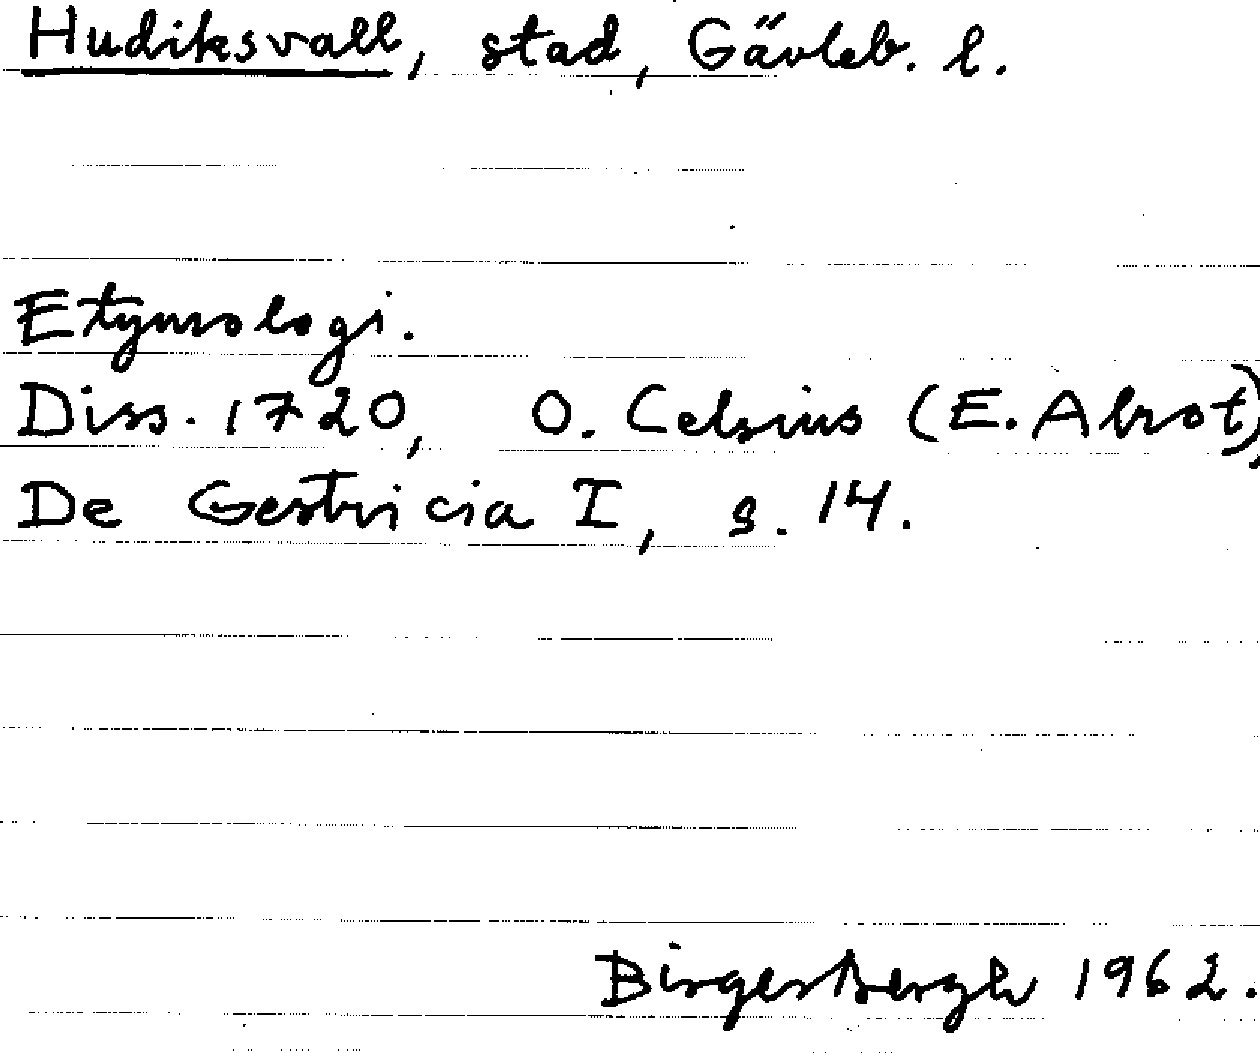 Hudiksvall, stad, Gävleb. l.
Etymologi.
Diss. 1720, O. Celsius (E. Abrot),
De Gestricia I, s. 14.
Birger Bergh 1962.